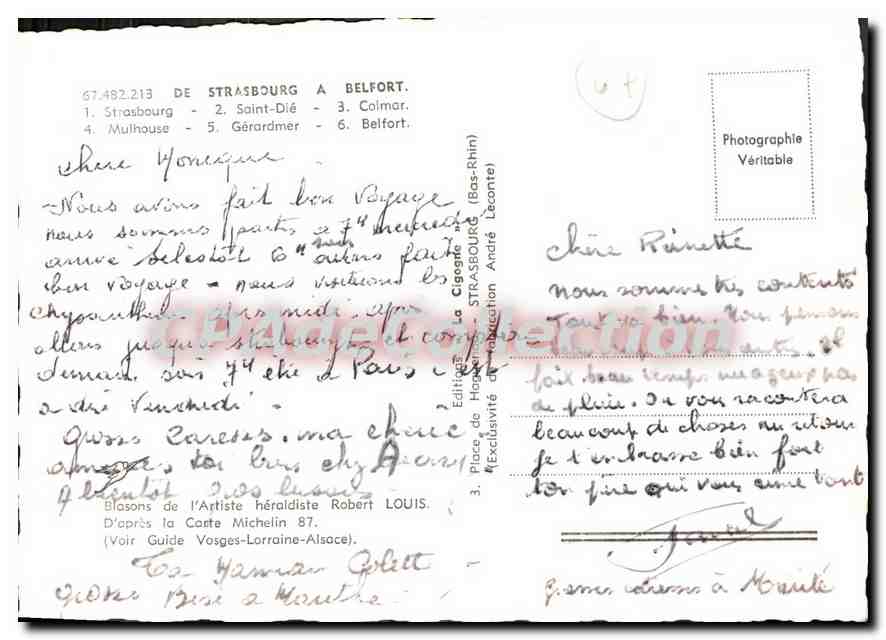 67.482.213 DE STRASBOURG A BELFORT.
1. Strasbourg - 2. Saint-Dié - 3. Colmar.
4. Mulhouse - 5. Gérardmer - 6. Belfort.
chere Monique
Nous avons fait bon Voyage
nous sommes partis a 7h mercredi
arrivé Selestat 6h nous avons fait
bon voyage - nous visitons les
chysanthèmes apres midi. apres
allons jusqua strasbourg et comptons
demain soir 7h être a Paris c'est
a dire Vendredi.
Grosses Caresses. ma cherie
bien chez
A bientot gros baisers
Blasons de l'Artiste héraldiste Robert LOUIS.
D'après la Carte Michelin 87.
(Voir Guide Vosges-Lorraine-Alsace).
Ta Maman Colett
grosse Bise a
Editions "La Cigogne"
3, Place de - STRASBOURG (Bas-Rhin)
(Exclusivité de fabrication André Leconte)
Photographie
Véritable
Chère Reinette
nous sommes très contents
Tout va bien. Nous pensons
il
fait beau temps nuageux pas
de pluie. On vous racontera
beaucoup de choses au retour
Je t'embrasse bien fort
ton père qui vous aime tant
grosses caresses à
CPADeCollection